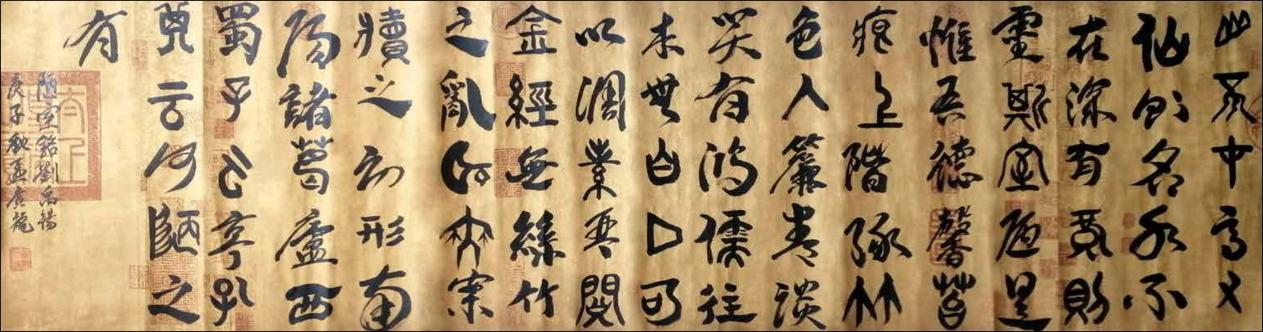 山不在高有
仙則名水不
在深有龍則
靈斯室陋是
惟吾德馨苔
痕上階綠草
色入簾青談
笑有鴻儒往
來無白丁可
以調素琴閱
金經無絲竹
之亂耳無案
牘之勞形南
陽諸葛廬西
蜀子雲亭孔
云何陋之
有
陋室銘劉禹錫
庚子秋孟廣龍